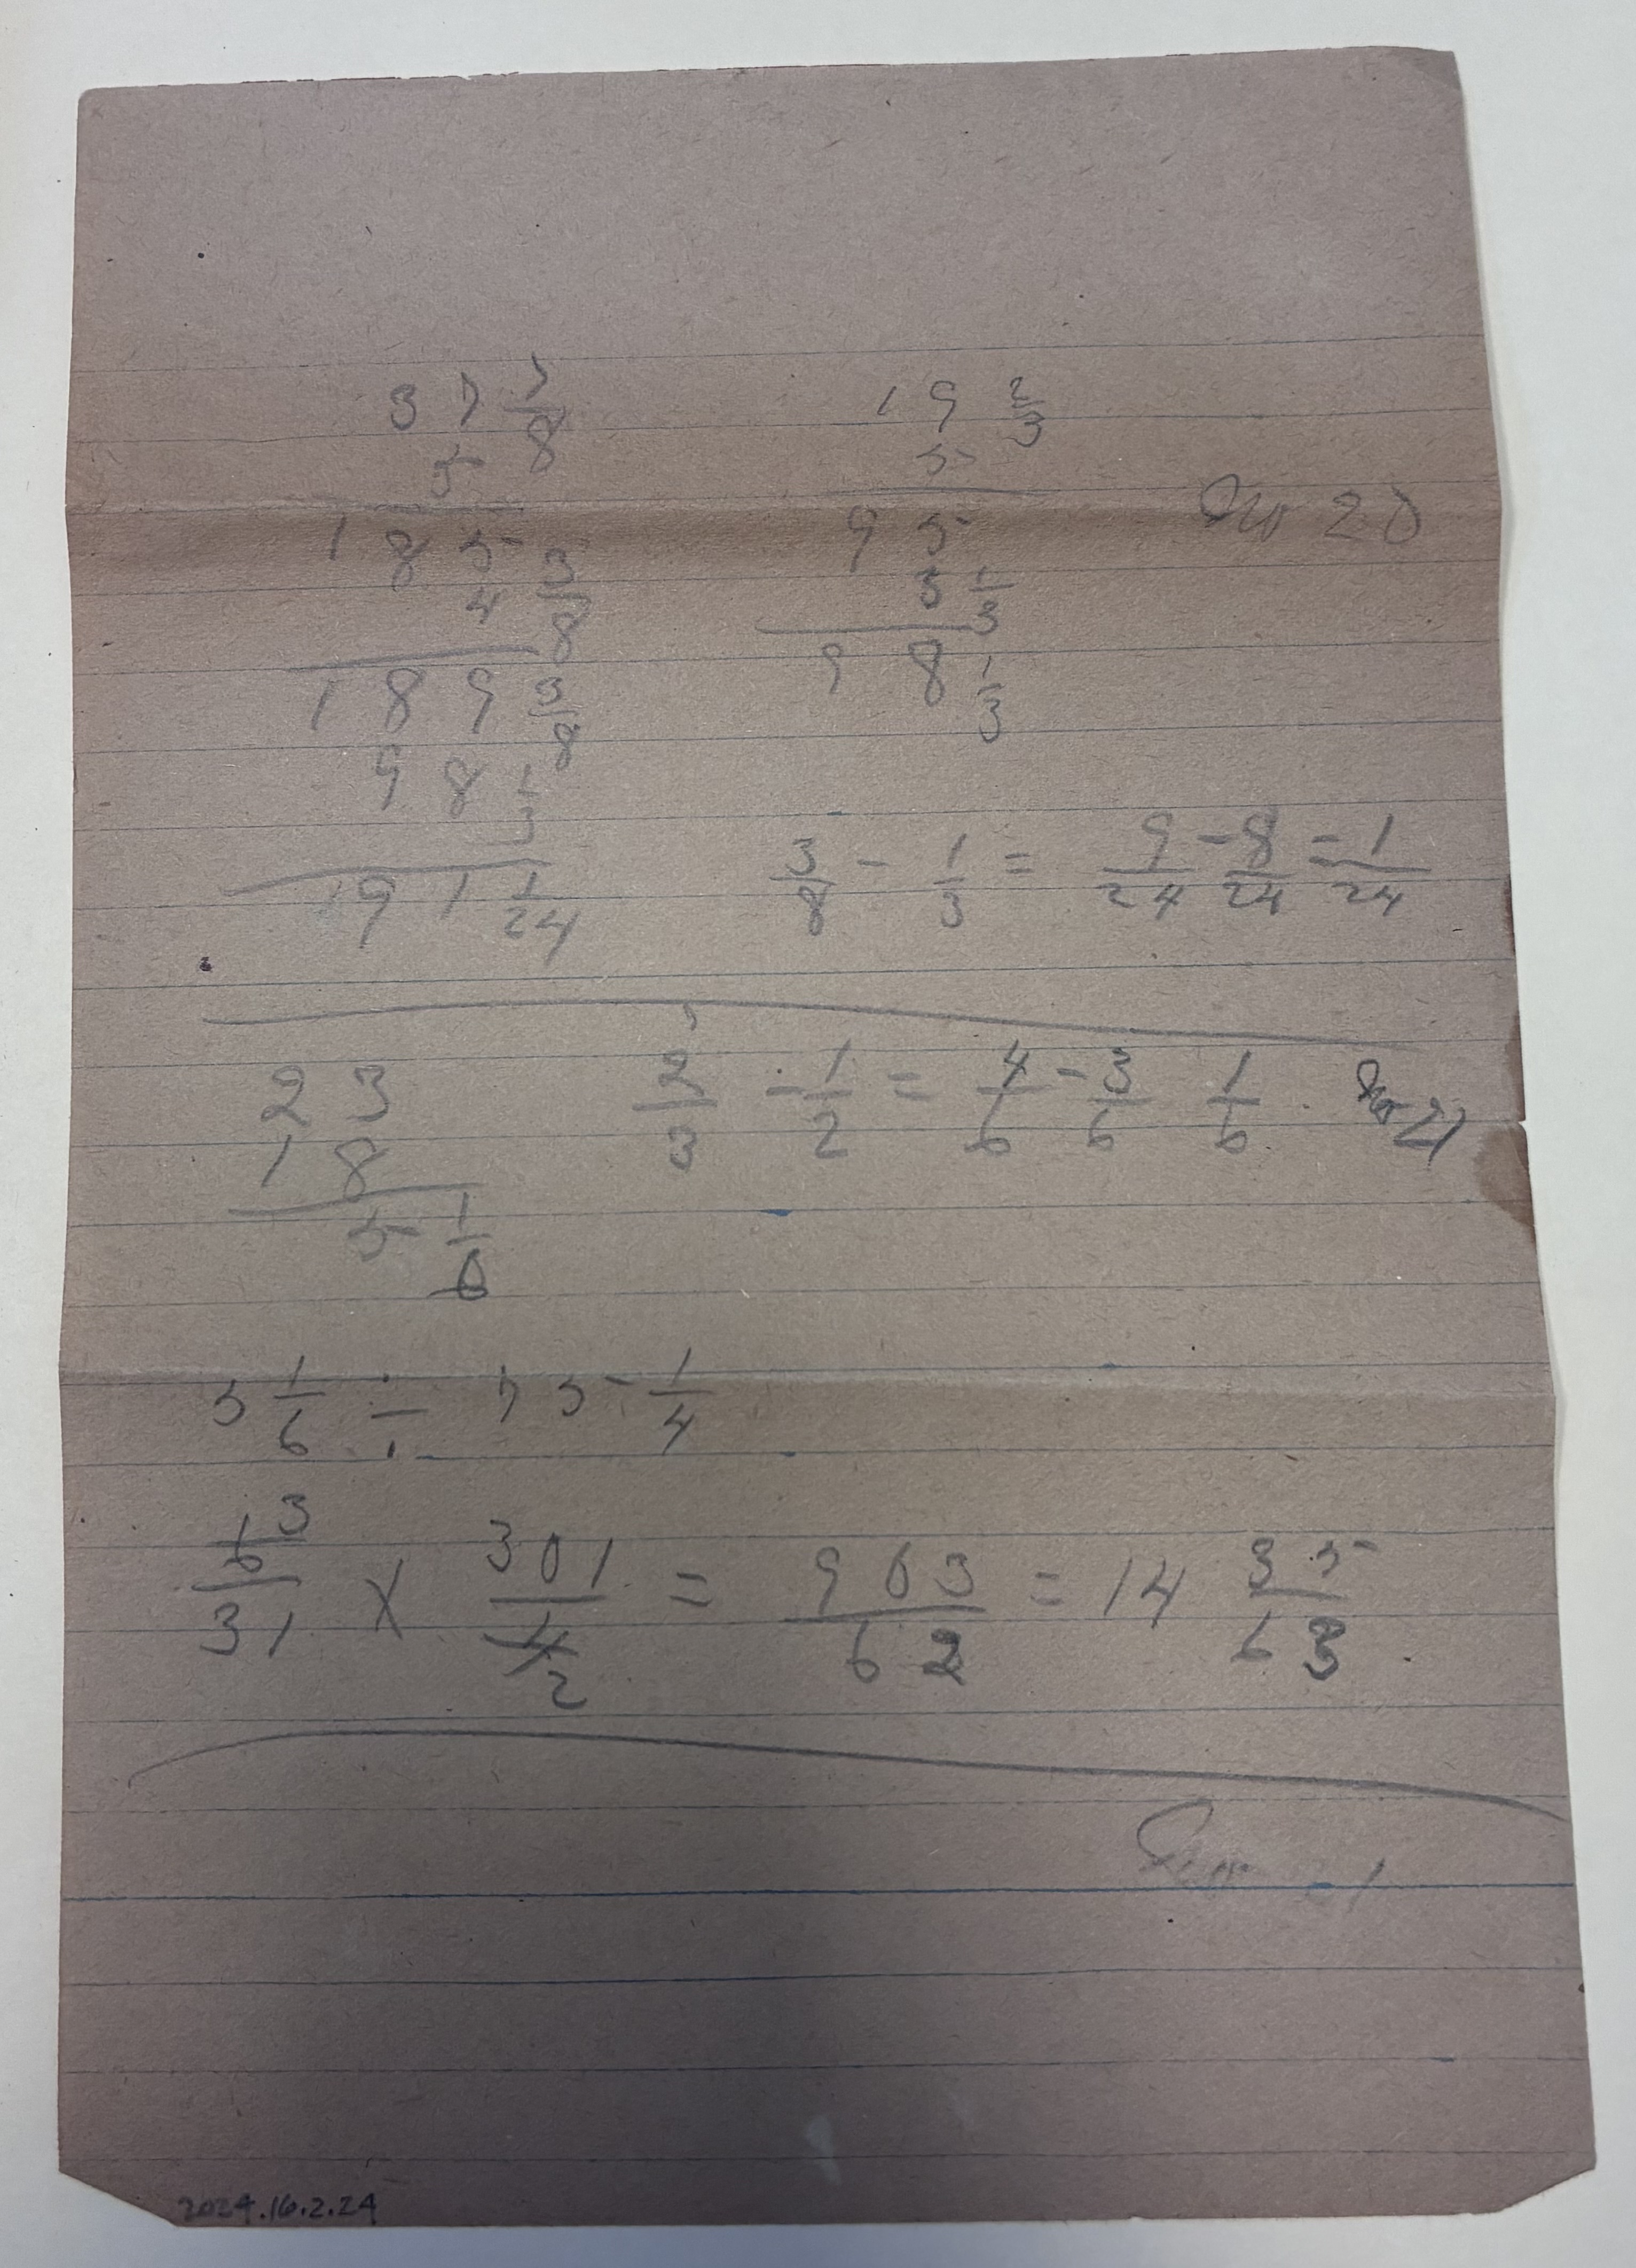 37 7/8
5
185
4 3/8
189 3/8
98 1/3
191 1/24
19 2/3
5
95
3 1/3
98 1/3
No 20
3/8 - 1/3 = 9/24 - 8/24 = 1/24
23
18
5 1/6
2/3 - 1/2 = 4/6 - 3/6 1/6 No 21
5 1/6 ÷ 75 1/4
6 3/31 X 301/4 2 = 963/62 = 14 35/63
2024.16.2.24